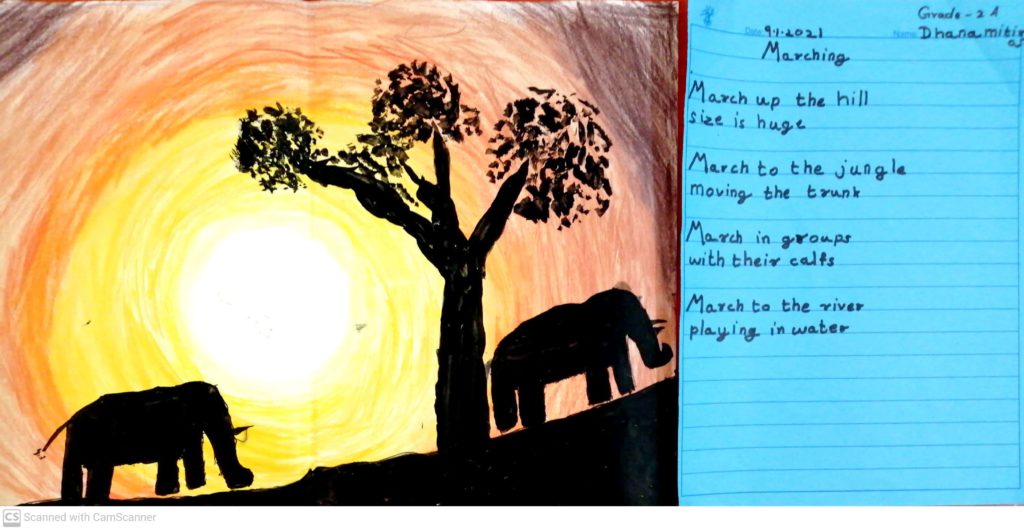 Grade - 2 A
Date 9.1.2021
Name Dhanamitir
Marching
March up the hill
size is huge
March to the jungle
moving the trunk
March in groups
with their calfs
March to the river
playing in water
CS Scanned with CamScanner